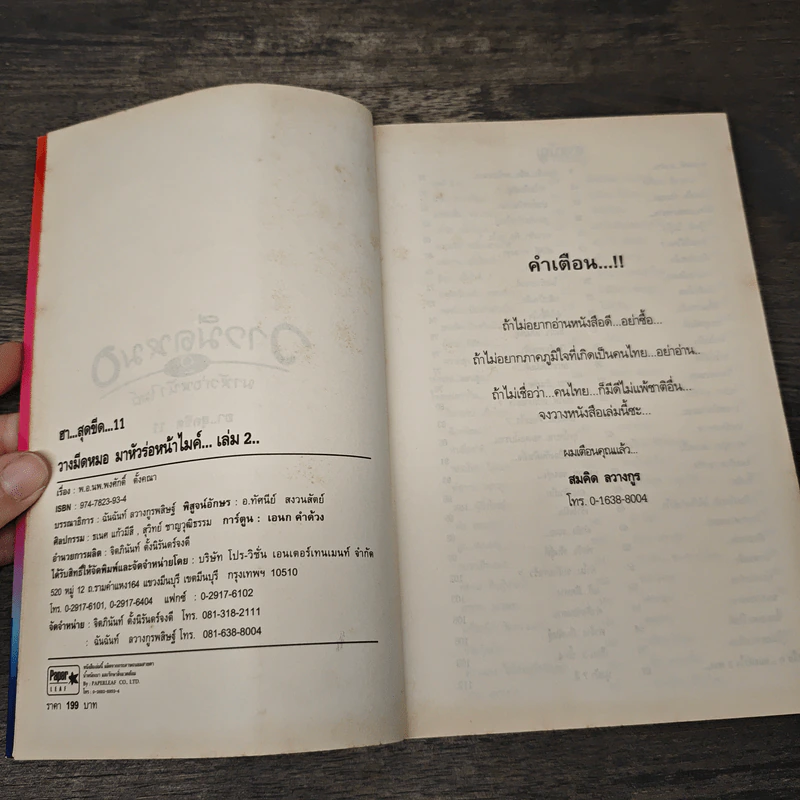 ฮา...สุดขีด...11
วางมีดหมอ มาหัวร่อหน้าไมค์... เล่ม 2..
เรื่อง : พ.อ.นพ.พงศักดิ์ ตั้งคณา
ISBN : 974-7823-93-4
บรรณาธิการ : ฉันฉันท์ ลวางกูรพสิษฐ์ พิสูจน์อักษร : อ.ทัศนีย์ สงวนสัตย์
ศิลปกรรม : ธเนศ แก้วมีสี , สุวิทย์ ชาญวุฒิธรรม การ์ตูน : เอนก คำด้วง
อำนวยการผลิต : จิตภินันท์ ตั้งนิรันดร์จงดี
ได้รับสิทธิ์ให้จัดพิมพ์และจัดจำหน่ายโดย : บริษัท โปร-วิชั่น เอนเตอร์เทนเมนท์ จำกัด
520 หมู่ 12 ถ.รามคำแหง164 แขวงมีนบุรี เขตมีนบุรี กรุงเทพฯ 10510
โทร. 0-2917-6101, 0-2917-6404 แฟกซ์ : 0-2917-6102
จัดจำหน่าย : จิตภินันท์ ตั้งนิรันดร์จงดี โทร. 081-318-2111
: ฉันฉันท์ ลวางกูรพสิษฐ์ โทร. 081-638-8004
Paper
LEAF
By : PAPERLEAF CO., LTD.
ราคา 199 บาท
คำเตือน...!!
ถ้าไม่อยากอ่านหนังสือดี...อย่าซื้อ...
ถ้าไม่อยากภาคภูมิใจที่เกิดเป็นคนไทย...อย่าอ่าน..
ถ้าไม่เชื่อว่า...คนไทย...ก็มีดีไม่แพ้ชาติอื่น...
จงวางหนังสือเล่มนี้ซะ...
ผมเตือนคุณแล้ว...
สมคิด ลวางกูร
โทร. 0-1638-8004